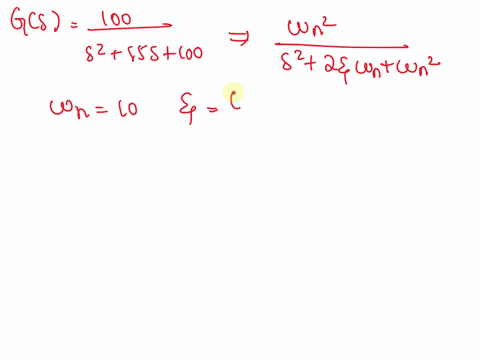 G(s) = 100 / s² + 15s + 100 ⇒ ωn² / s² + 2ξωn + ωn²
ωn = 10 ξ = (